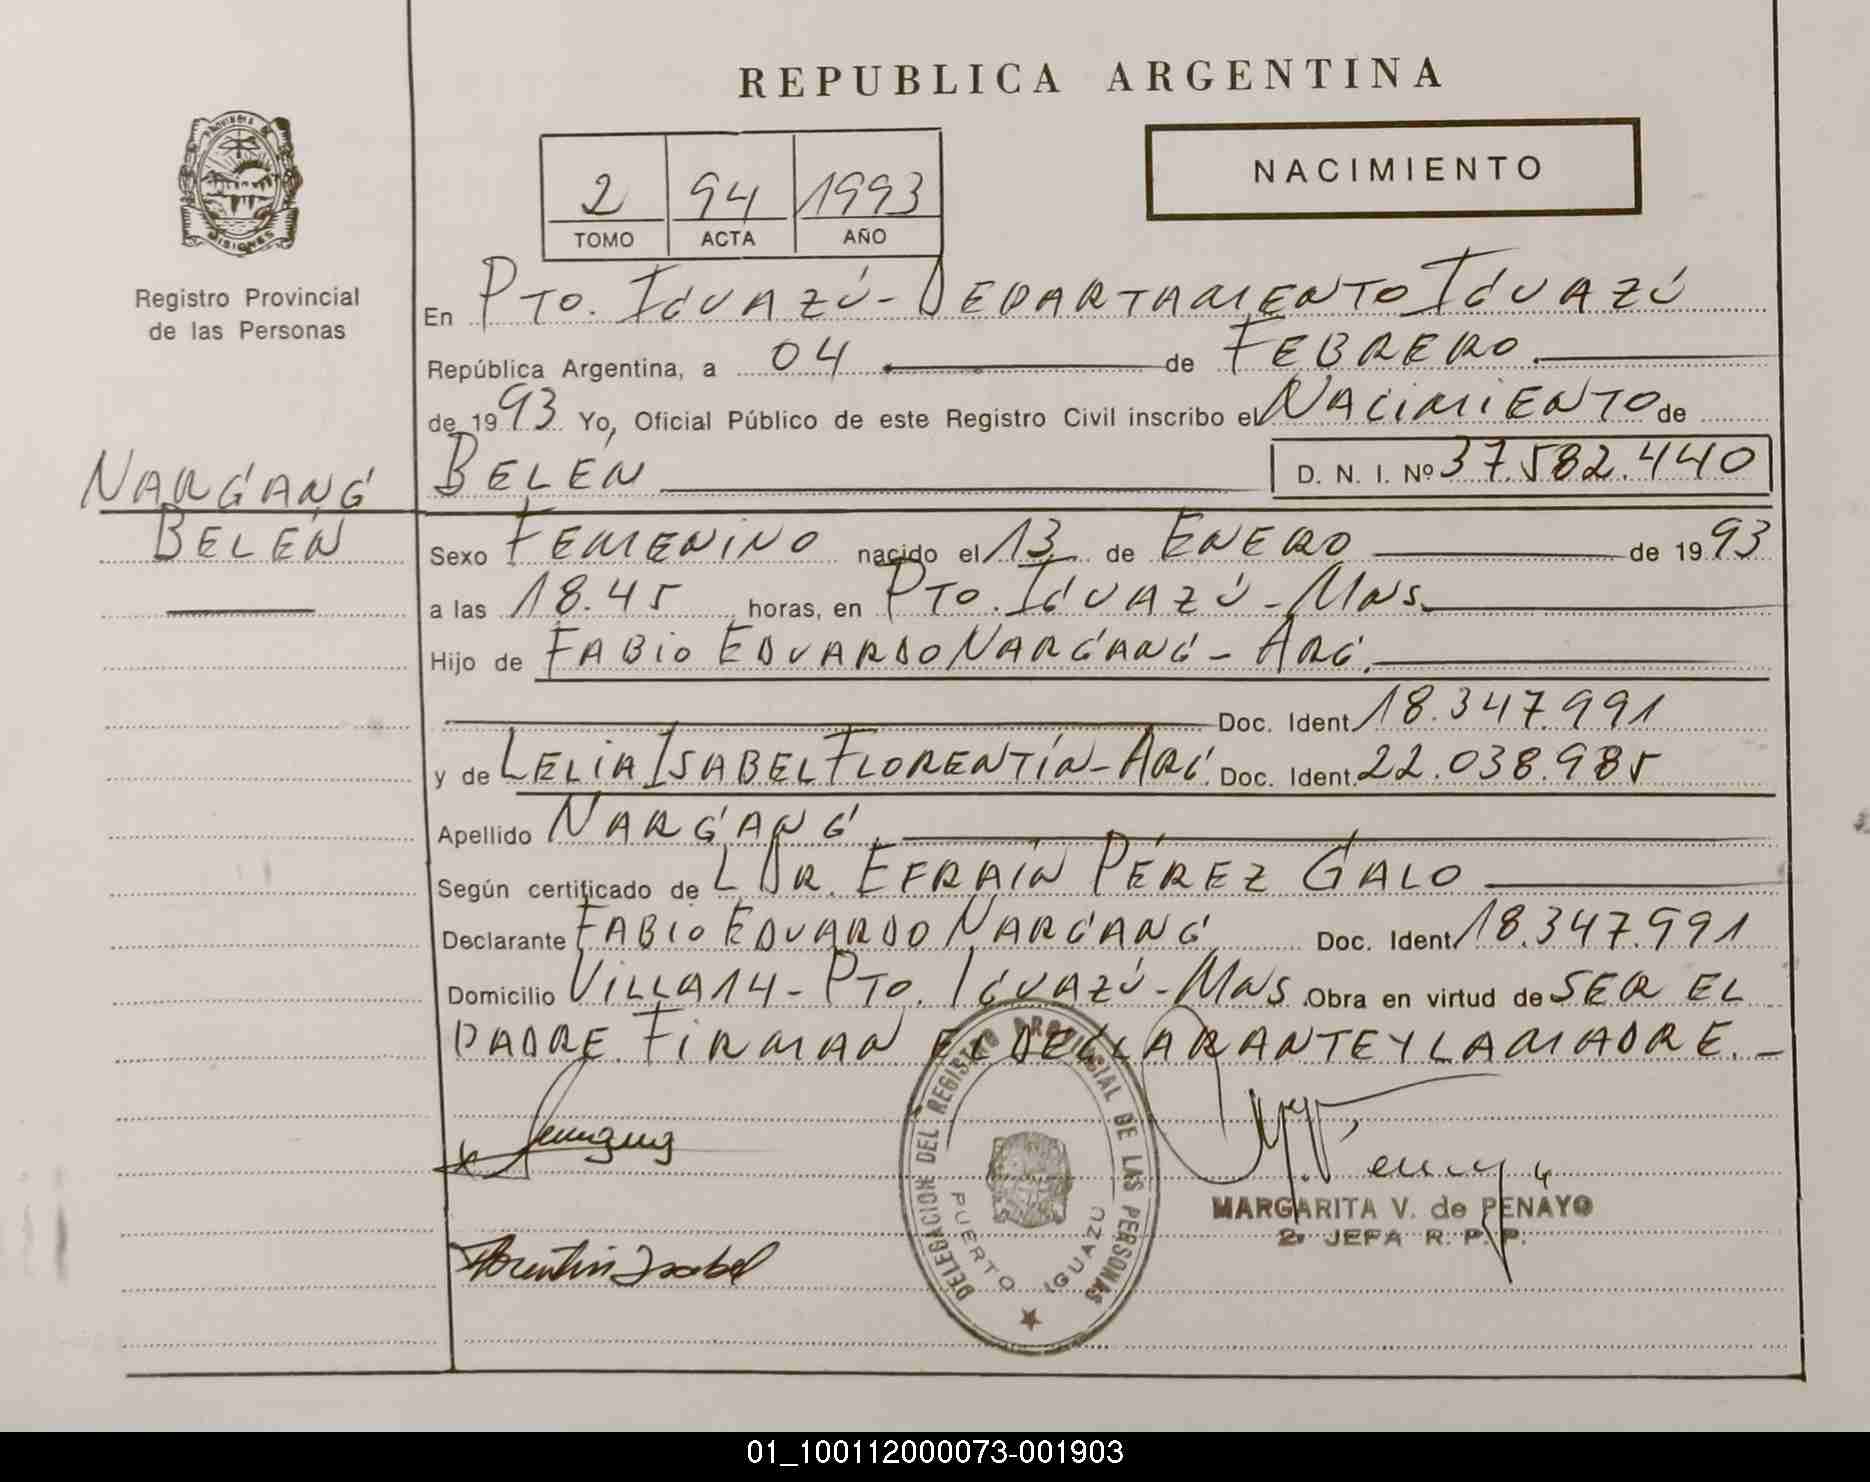 REPUBLICA ARGENTINA
PROVINCIA DE
MISIONES
Registro Provincial
de las Personas
2 94 1993
TOMO ACTA AÑO
NACIMIENTO
En PTO. IGUAZÚ - DEPARTAMENTO IGUAZÚ
República Argentina, a 04 de FEBRERO.
de 1993 Yo, Oficial Público de este Registro Civil inscribo el NACIMIENTO de
NARGANG
BELÉN
BELÉN D. N. I. Nº 37.582.440
Sexo FEMENINO nacido el 13 de ENERO de 1993
a las 18.45 horas, en PTO. IGUAZÚ - MNS.
Hijo de FABIO EDUARDO NARGANG - ARG.
Doc. Ident. 18.347.991
y de LELIA ISABEL FLORENTÍN - ARG. Doc. Ident. 22.038.985
Apellido NARGANG.
Según certificado de L DR. EFRAÍN PÉREZ GALO
Declarante FABIO EDUARDO NARGANG Doc. Ident. 18.347.991
Domicilio VILLA 14 - PTO. IGUAZÚ - MNS. Obra en virtud de SER EL
PADRE. FIRMAN EL DECLARANTE Y LA MADRE. -
DELEGACION DEL REGISTRO PROVINCIAL DE LAS PERSONAS
PUERTO IGUAZU
MARGARITA V. de PENAYO
2ª JEFA R. P. P.
Florentin Isabel
01_100112000073-001903